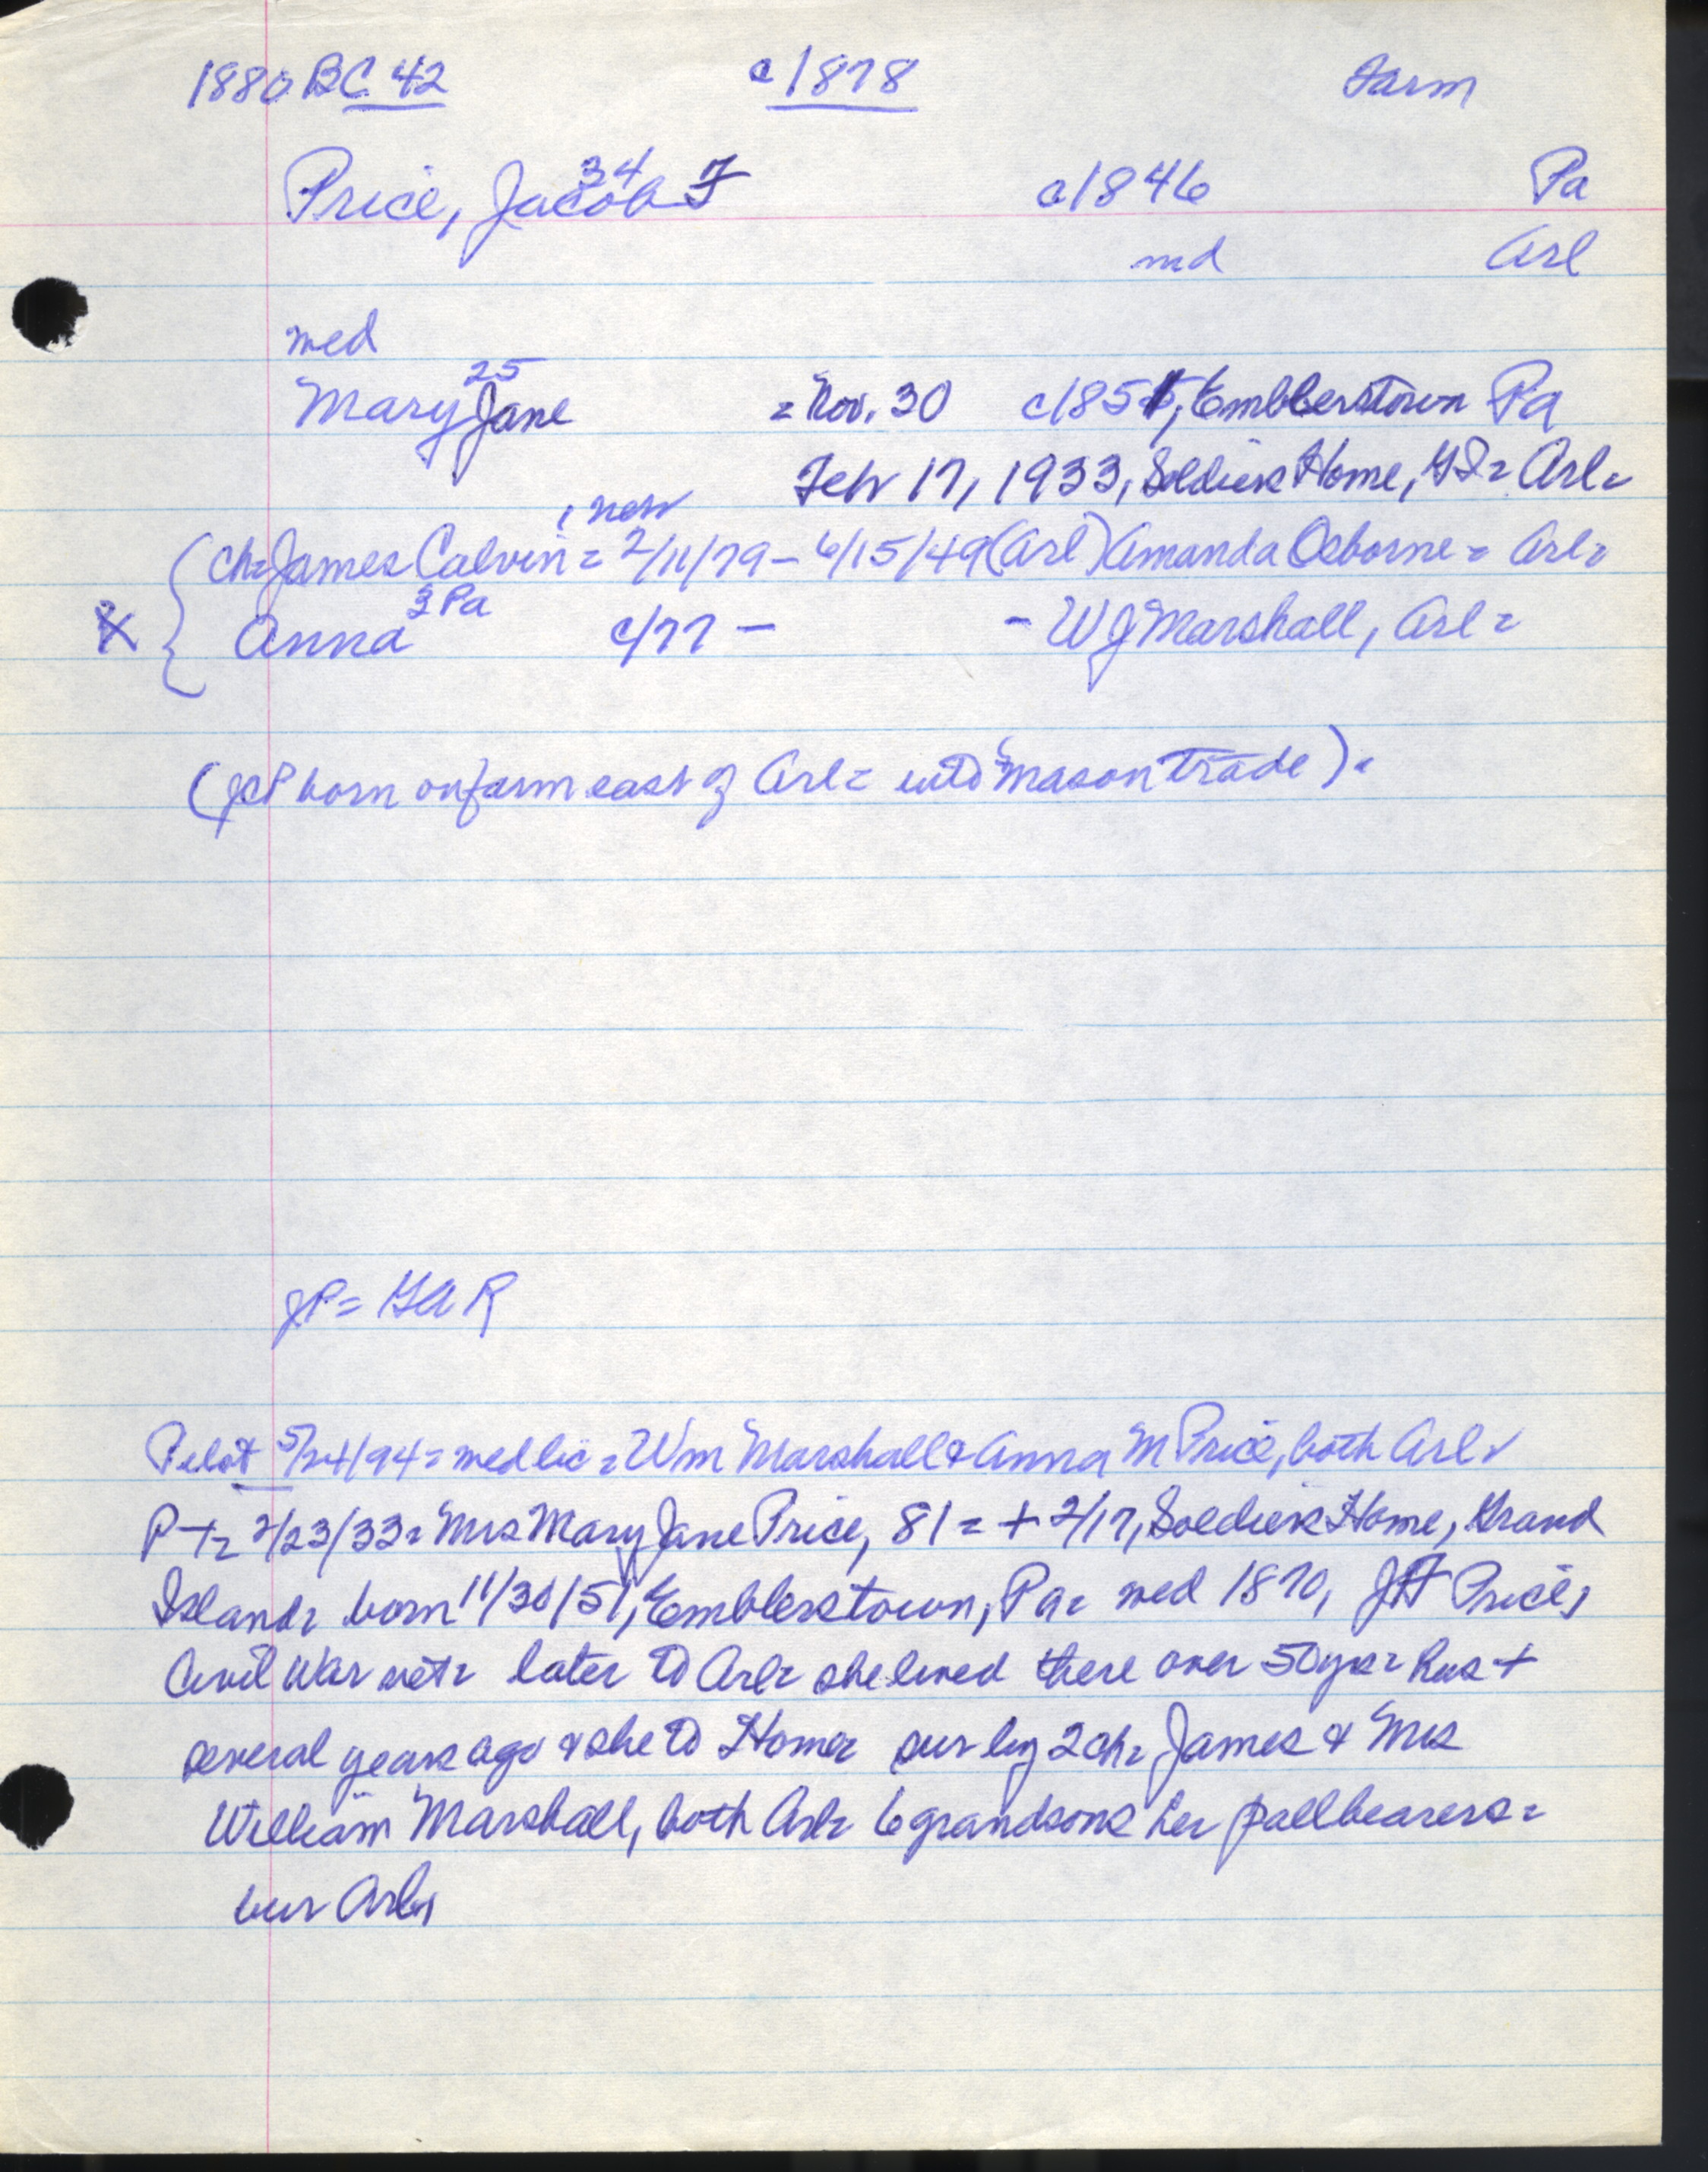 1880 BC 42 c1878 Farm
34
Price, Jacob F c1846 Pa
nd Arl
med
25
Mary Jane = Nov. 30 c1851, Emblerstown Pa
Feb 17, 1933, Soldiers Home, GI = Arl =
, neb
ch= James Calvin = 2/11/79 - 6/15/49 (Arl) Amanda Osborne = Arl =
X Anna 3 Pa c/77 - - W J Marshall, Arl =
(JCP born on farm east of Arl = into mason trade) =
JP = GAR
Pilot 5/24/94 = med lic = Wm Marshall & Anna M Price, both Arl
P-T= 2/23/33 = Mrs Mary Jane Price, 81 = + 2/17, Soldiers Home, Grand
Island= born 11/30/51, Emblerstown, Pa = med 1870, JF Price,
Civil War vet= later to Arl= she lived there over 50 yrs = hus +
several years ago & she to Home= sur by 2 ch= James & Mrs
William Marshall, both Arl= 6 grandsons her pallbearers =
bur Arl=